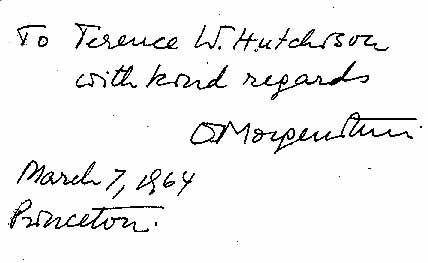 To Terence W. Hutchison
with kind regards
O Morgenstern
March 7, 1964
Princeton.